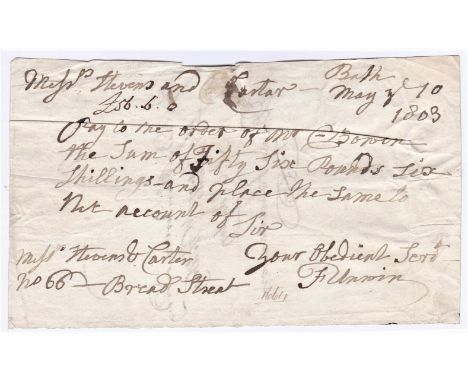 Bath
Mess.rs Stevens and Cartar - May ye 10
£56.6.0 1803
Pay to the order of Mr Bowin
the Sum of Fifty Six Pounds Six
Shillings and place the Same to
Nit account of
Sir
Mess.rs Stevens & Carter Your Obedient Serv.t
No 66 - Bread Street F Unwin